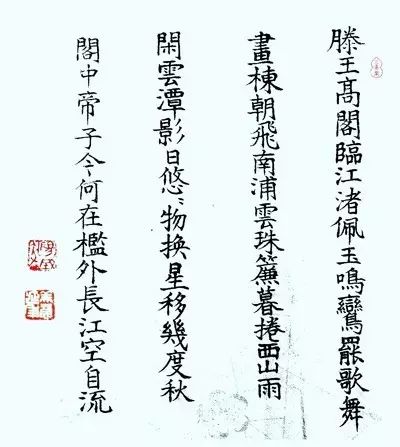 滕王髙閣臨江渚佩玉鳴鸞罷歌舞
畫棟朝飛南浦雲珠簾暮捲西山雨
閑雲潭影日悠〻物换星移幾度秋
閣中帝子今何在檻外長江空自流